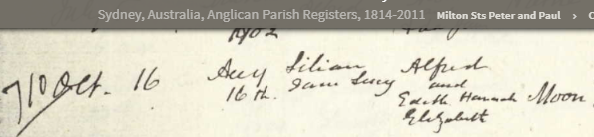 Sydney, Australia, Anglican Parish Registers, 1814-2011 Milton Sts Peter and Paul > C
1902
710 Oct. 16 Aug Lilian Alfred
16th. Jane Lucy and
Edith Hannah Moon
Elizabeth